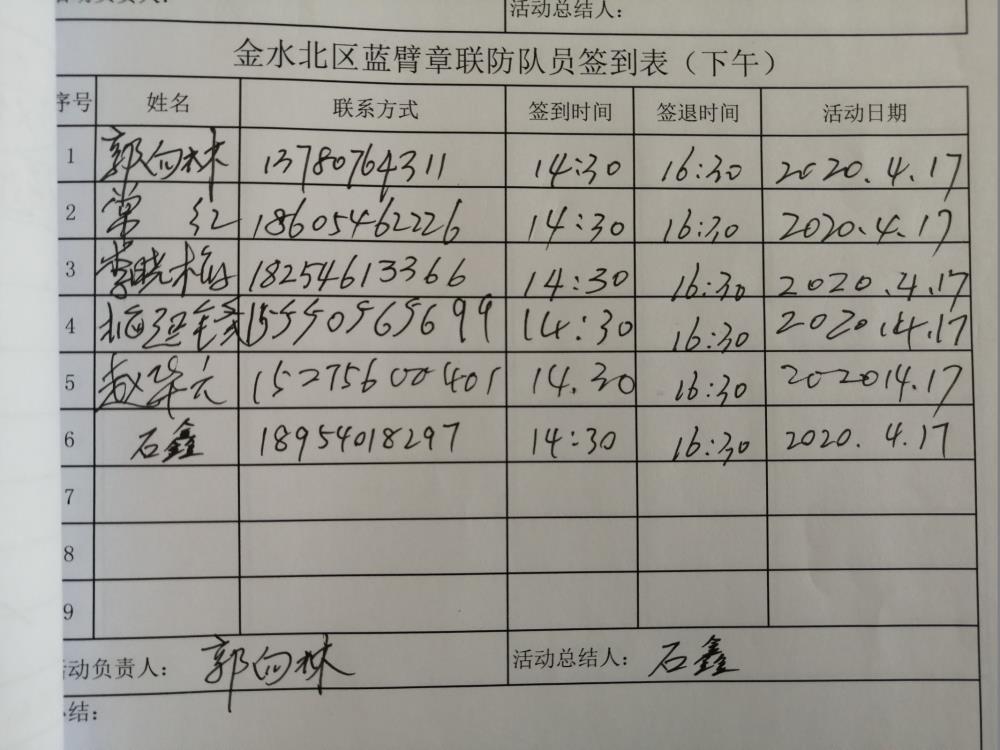 活动总结人：
金水北区蓝臂章联防队员签到表（下午）
序号 姓名 联系方式 签到时间 签退时间 活动日期
1 郭向林 13780764311 14:30 16:30 2020.4.17
2 常红 18605462226 14:30 16:30 2020.4.17
3 李晓梅 18254613366 14:30 16:30 2020.4.17
4 14:30 16:30 2020.4.17
5 赵华云 15275600401 14.30 16:30 202014.17
6 石鑫 18954018297 14:30 16:30 2020.4.17
7
8
9
活动负责人：郭向林 活动总结人：石鑫
小结：